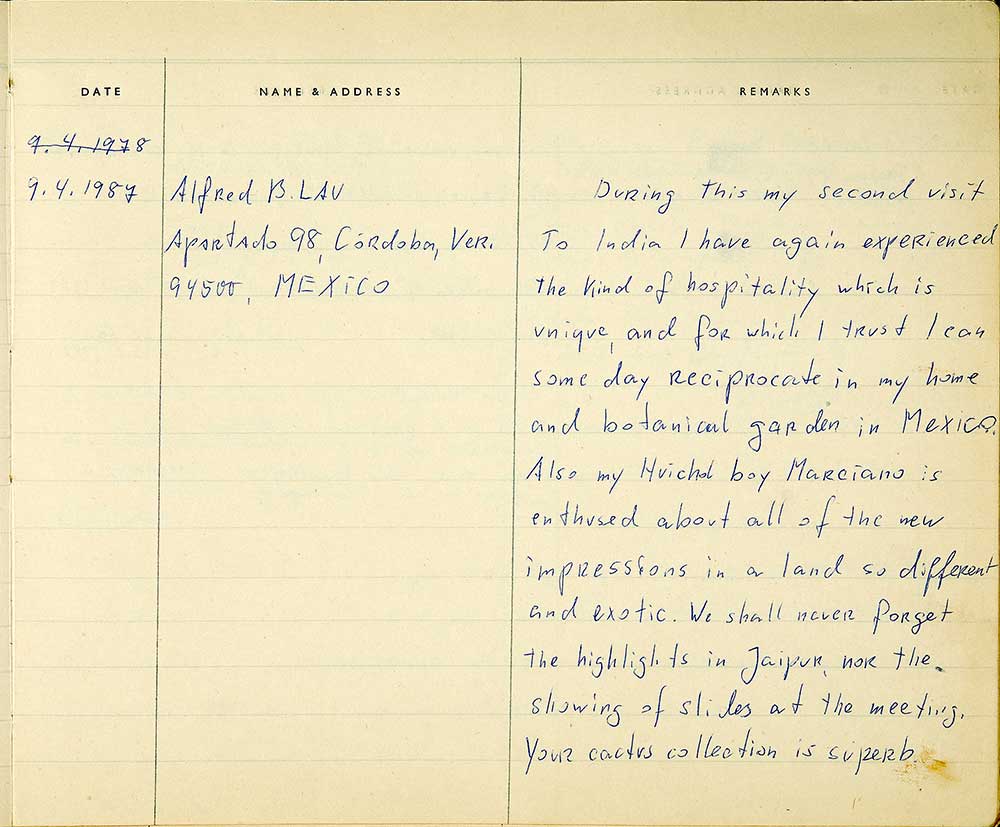 DATE
NAME & ADDRESS
REMARKS
9.4.1978
9.4.1987
Alfred B. LAU
Apartado 98, Córdoba, Ver.
94500, MEXICO
During this my second visit
To India I have again experienced
the kind of hospitality which is
unique, and for which I trust I can
some day reciprocate in my home
and botanical garden in Mexico.
Also my Huichol boy Marciano is
enthused about all of the new
impressions in a land so different
and exotic. We shall never forget
the highlights in Jaipur, nor the
showing of slides at the meeting.
Your cactus collection is superb.